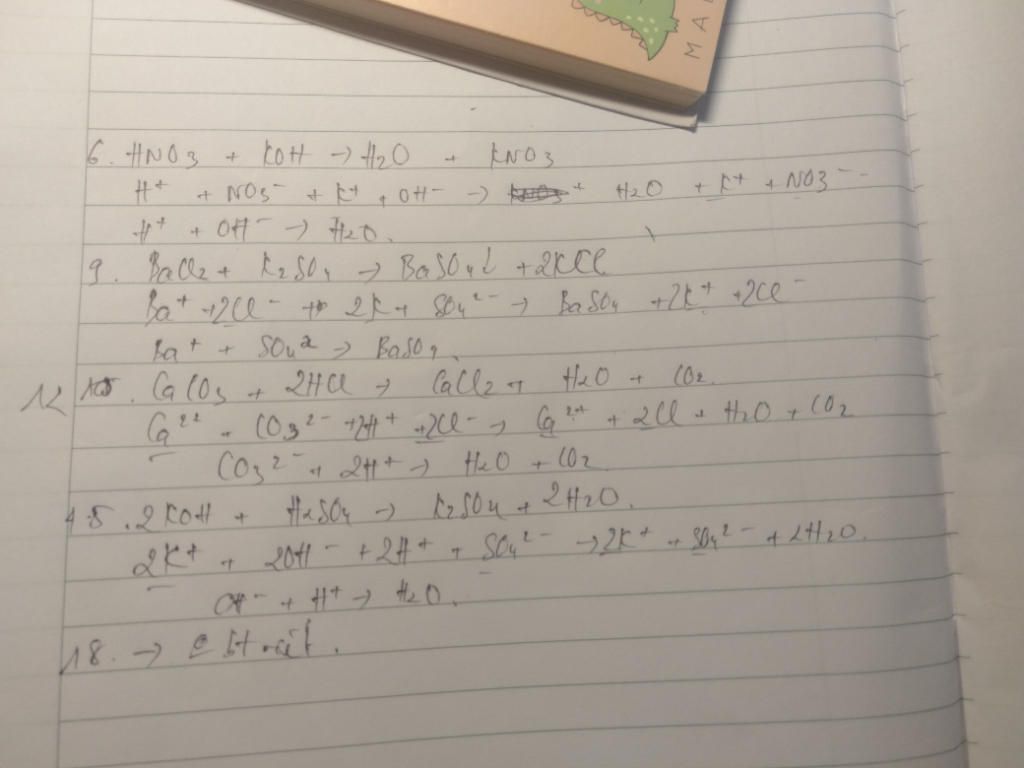 MA
6. HNO3 + KOH → H2O + KNO3
H+ + NO3- + K+ + OH- → + H2O + K+ + NO3-
H+ + OH- → H2O.
9. BaCl2 + K2SO4 → BaSO4↓ + 2KCl
Ba+ + 2Cl- + 2K+ SO4 2- → BaSO4 + 2K+ + 2Cl-
Ba+ + SO4 2 → BaSO4.
12 . CaCO3 + 2HCl → CaCl2 + H2O + CO2.
Ca 22 + CO3 2- + 2H+ + 2Cl- → Ca 2+ + 2Cl + H2O + CO2
CO3 2- + 2H+ → H2O + CO2
15. 2KOH + H2SO4 → K2SO4 + 2H2O.
2K+ + 2OH- + 2H+ + SO4 2- → 2K+ + SO4 2- + 2H2O.
OH- + H+ → H2O.
18. →